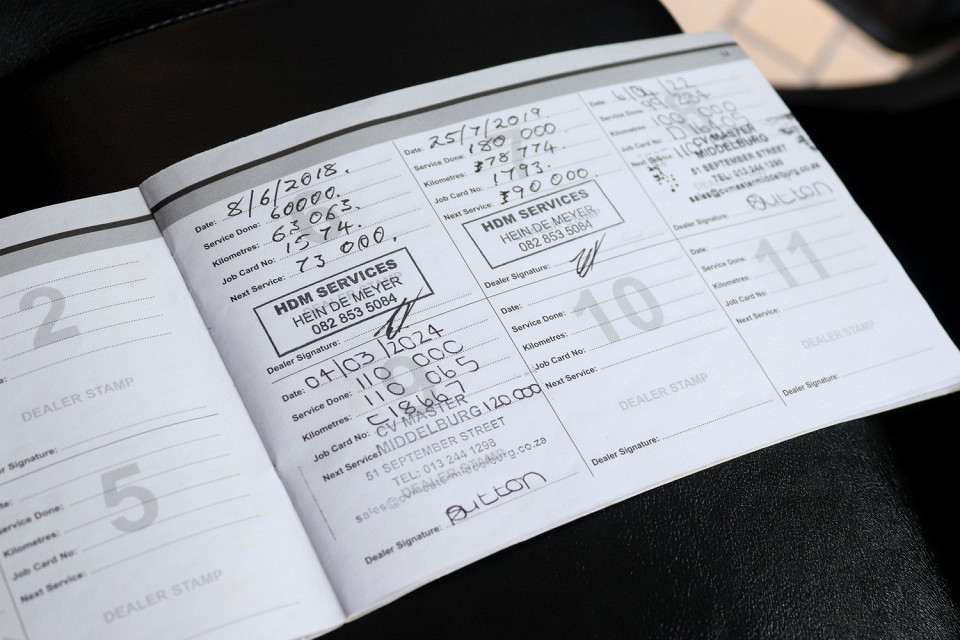 2
DEALER STAMP
5
Service Done:
Kilometres:
Job Card No:
Next Service:
DEALER STAMP
Date: 8/6/2018.
Service Done: 60000.
Kilometres: 63 063.
Job Card No: 1574.
Next Service: 73 000.
HDM SERVICES
HEIN DE MEYER
082 853 5084
Dealer Signature:
Date: 25/7/2019.
Service Done: 180 000
Kilometres: 78 774.
Job Card No: 1793.
Next Service: 90 000.
HDM SERVICES
HEIN DE MEYER
082 853 5084
Dealer Signature:
Date: 22
Service Done:
Kilometres:
Job Card No:
Next
CV MASTER
MIDDELBURG
51 SEPTEMBER STREET
TEL: 013 244 1298
sales@cvmastermiddelburg.co.za
Dealer Signature:
Date: 04/03/2024
Service Done: 110 000
Kilometres: 110 065
Job Card No:
Next Service: 120.000
CV MASTER
MIDDELBURG
51 SEPTEMBER STREET
TEL: 013 244 1298
DEALER STAMP
Dealer Signature:
10
Date:
Service Done:
Kilometres:
Job Card No:
Next Service:
DEALER STAMP
Dealer Signature:
11
Date:
Service Done:
Kilometres:
Job Card No:
Next Service:
DEALER STAMP
Dealer Signature: